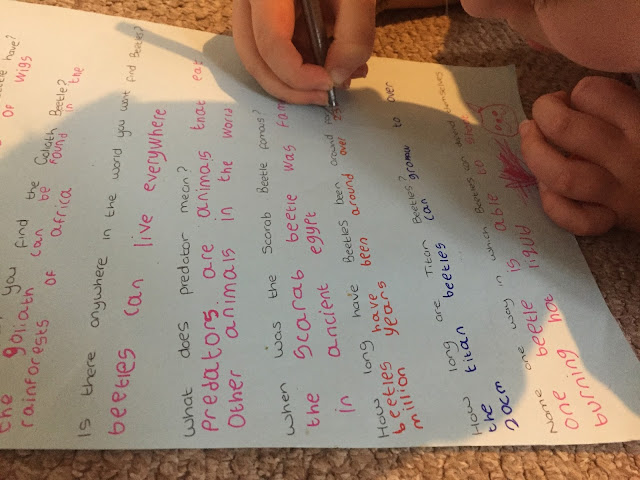 have?
of wigs
you find the Goliath Beetle?
the goliath can be found in the
rainforests of africa
Is there anywhere in the world you wont find Beetles?
beetles can live everywhere
what does predator mean?
Predators are animals that eat
Other animals in the world
when was the Scarab Beetle famous?
the scarab beetle was fam
in ancient egypt
How long have Beetles been around
beetles have been around over 25
million years
How long are Titan Beetles?
the titan beetles can gromw to over
20cm
Name one way in which Beetles can defend themselves
one beetle is able to
burning hot liquid